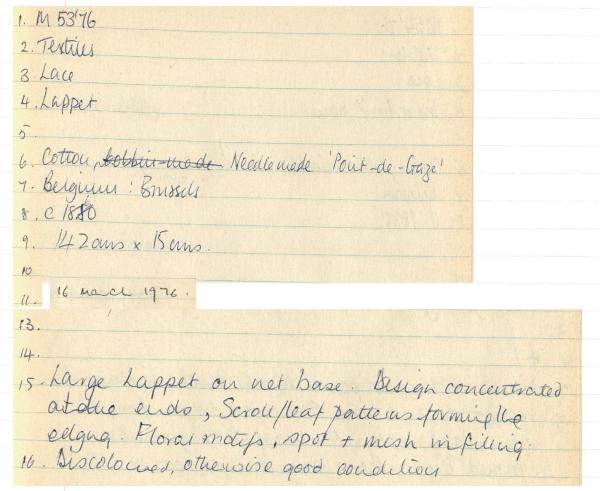 1. M 53'76
2. Textiles
3. Lace
4. Lappet
5.
6. Cotton, bobbin-made Needlemade 'Point-de-Gaze'
7. Belgium : Brussels
8. c 1880
9. 142cms x 15cms.
10
11. 16 march 1976.
13.
14.
15. Large Lappet on net base. Design concentrated
at the ends, Scroll/leaf patterns forming the
edging. Floral motifs, spot + mesh infilling.
16. Discoloured, otherwise good condition